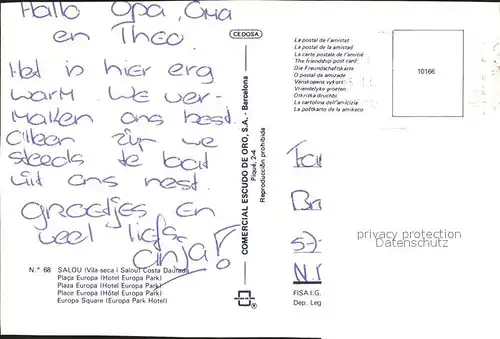 Hallo Opa, Oma
en Theo.
Het is hier erg
warm. We ver-
maken ons best.
Alleen zijn we
steeds te laat
uit ons nest.
groetjes en
veel liefs.
Anja!
N.° 68 SALOU (Vila-seca i Salou) Costa Daurada
Plaça Europa (Hotel Europa Park)
Plaza Europa (Hotel Europa Park)
Place Europa (Hôtel Europa Park)
Europa Square (Europa Park Hotel)
CEDOSA
COMERCIAL ESCUDO DE ORO, S.A. - Barcelona
Piqué, 2-4
Reproducción prohibida
La postal de l'amistat
La postal de la amistad
La carte postale de l'amitié
The friendship post card
Die Freundschaftskarte
O postal da amizade
Vänskapens vykort
Vriendelyke groeten
Otkritka druchbi
La cartolina dell'amicizia
La poŝtkarto de la amikeco
10166
Fa
Br
57
N.
privacy protection
Datenschutz
FISA I.G.
Dep. Leg